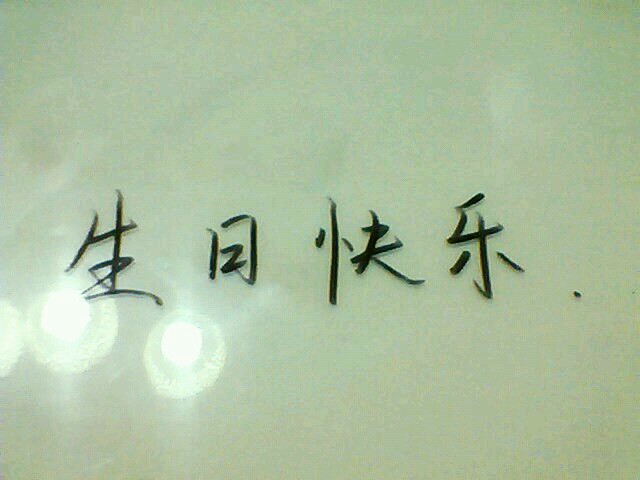 生日快乐.